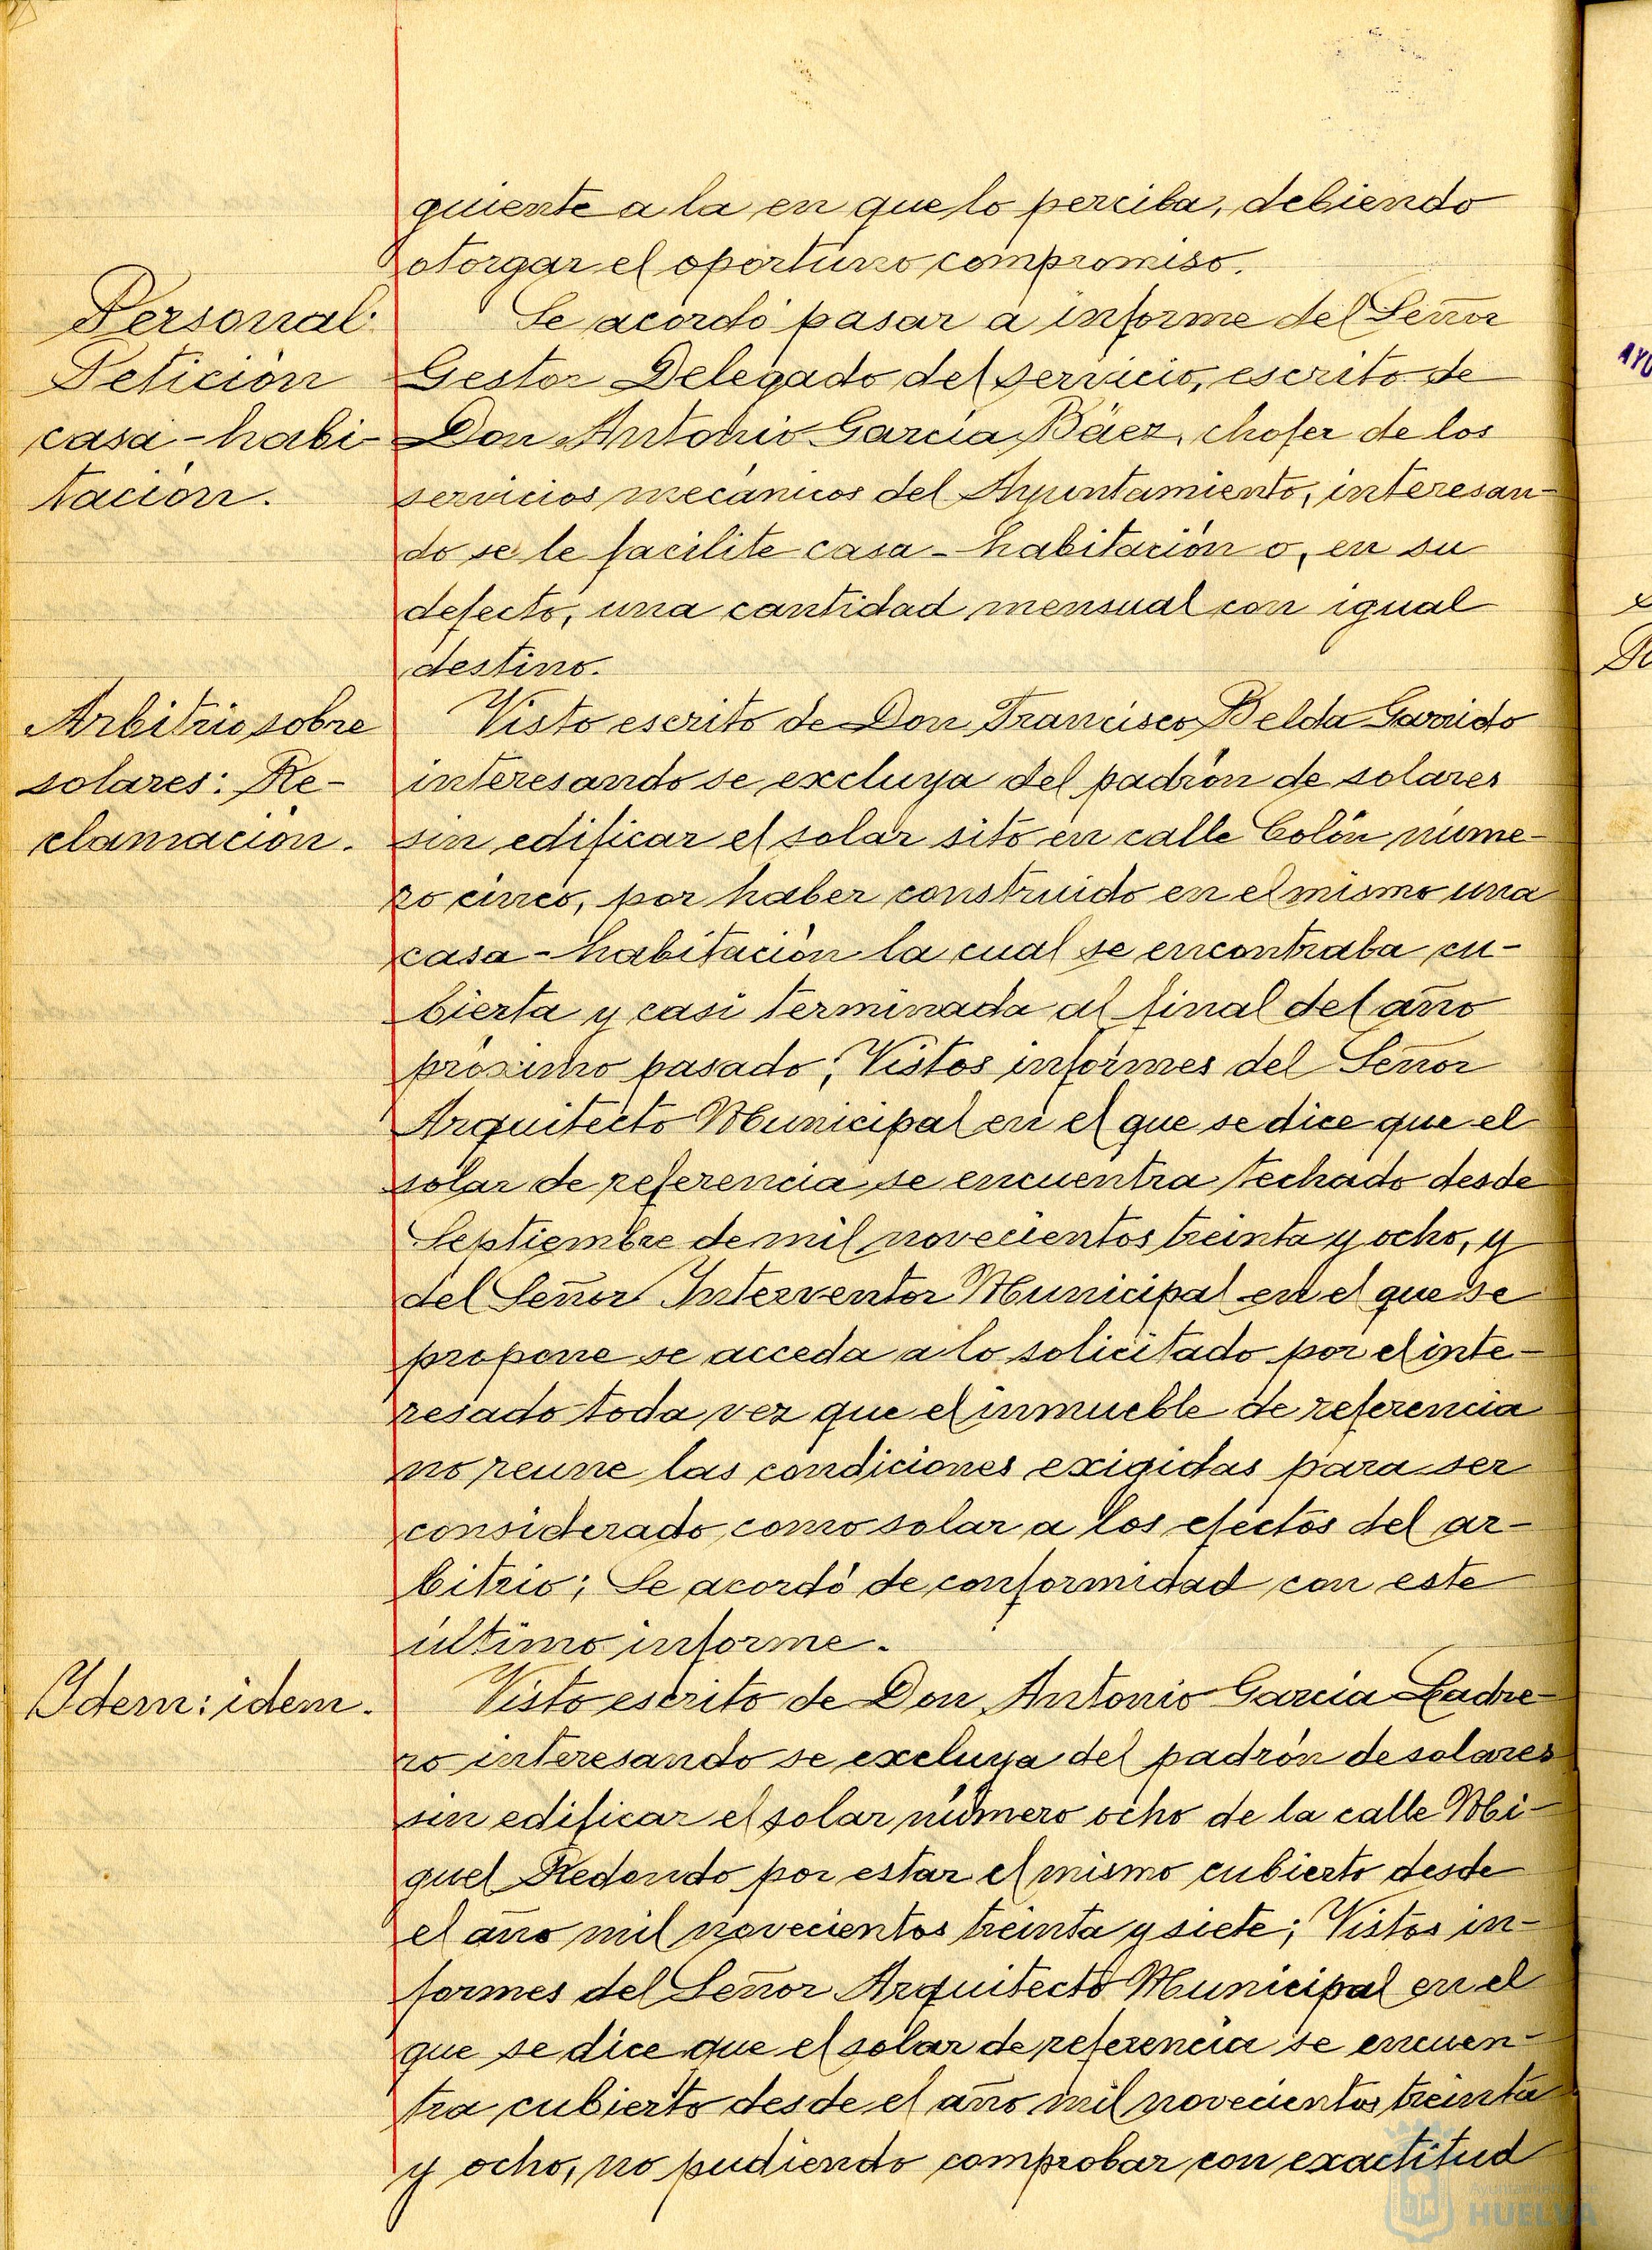 guiente a la en que lo perciba, debiendo
otorgar el oportuno compromiso.
Personal:
Petición
casa-habi
tación.
Se acordó pasar a informe del Señor
Gestor Delegado del servicio, escrito de
Don Antonio García Báez, chofer de los
servicios mecánicos del Ayuntamiento, interesan-
do se le facilite casa-habitación o, en su
defecto, una cantidad mensual con igual
destino.
Arbitrio sobre
solares: Re-
clamación.
Visto escrito de Don Francisco Belda Garrido
interesando se excluya del padrón de solares
sin edificar el solar sito en calle Colón núme-
ro cinco, por haber construido en el mismo una
casa-habitación la cual se encontraba cu-
bierta y casi terminada al final del año
próximo pasado; Vistos informes del Señor
Arquitecto Municipal en el que se dice que el
solar de referencia se encuentra techado desde
Septiembre de mil novecientos treinta y ocho, y
del Señor Interventor Municipal en el que se
propone se acceda a lo solicitado por el inte-
resado toda vez que el inmueble de referencia
no reune las condiciones exigidas para ser
considerado como solar a los efectos del ar-
bitrio; Se acordó de conformidad con este
último informe.
Idem: idem.
Visto escrito de Don Antonio García Ladre-
ro interesando se excluya del padrón de solares
sin edificar el solar número ocho de la calle Mi-
guel Redondo por estar el mismo cubierto desde
el año mil novecientos treinta y siete; Vistos in-
formes del Señor Arquitecto Municipal en el
que se dice que el solar de referencia se encuen-
tra cubierto desde el año mil novecientos treinta
y ocho, no pudiendo comprobar con exactitud
AYU
Ayuntamiento de
HUELVA